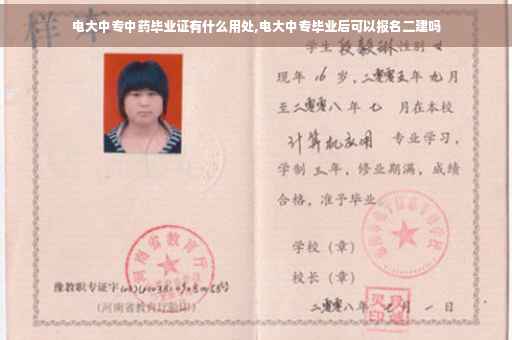 电大中专中药毕业证有什么用处,电大中专毕业后可以报名二建吗
样本
学生段毅琳性别女
现年16岁,二零零五年九月
至二零零八年七月在本校
计算机应用专业学习,
学制三年,修业期满,成绩
合格,准予毕业。
学校(章)
校长(章)
二零零八年七月一日
河南省教育厅
豫教职专证字
(河南省教育厅验印)